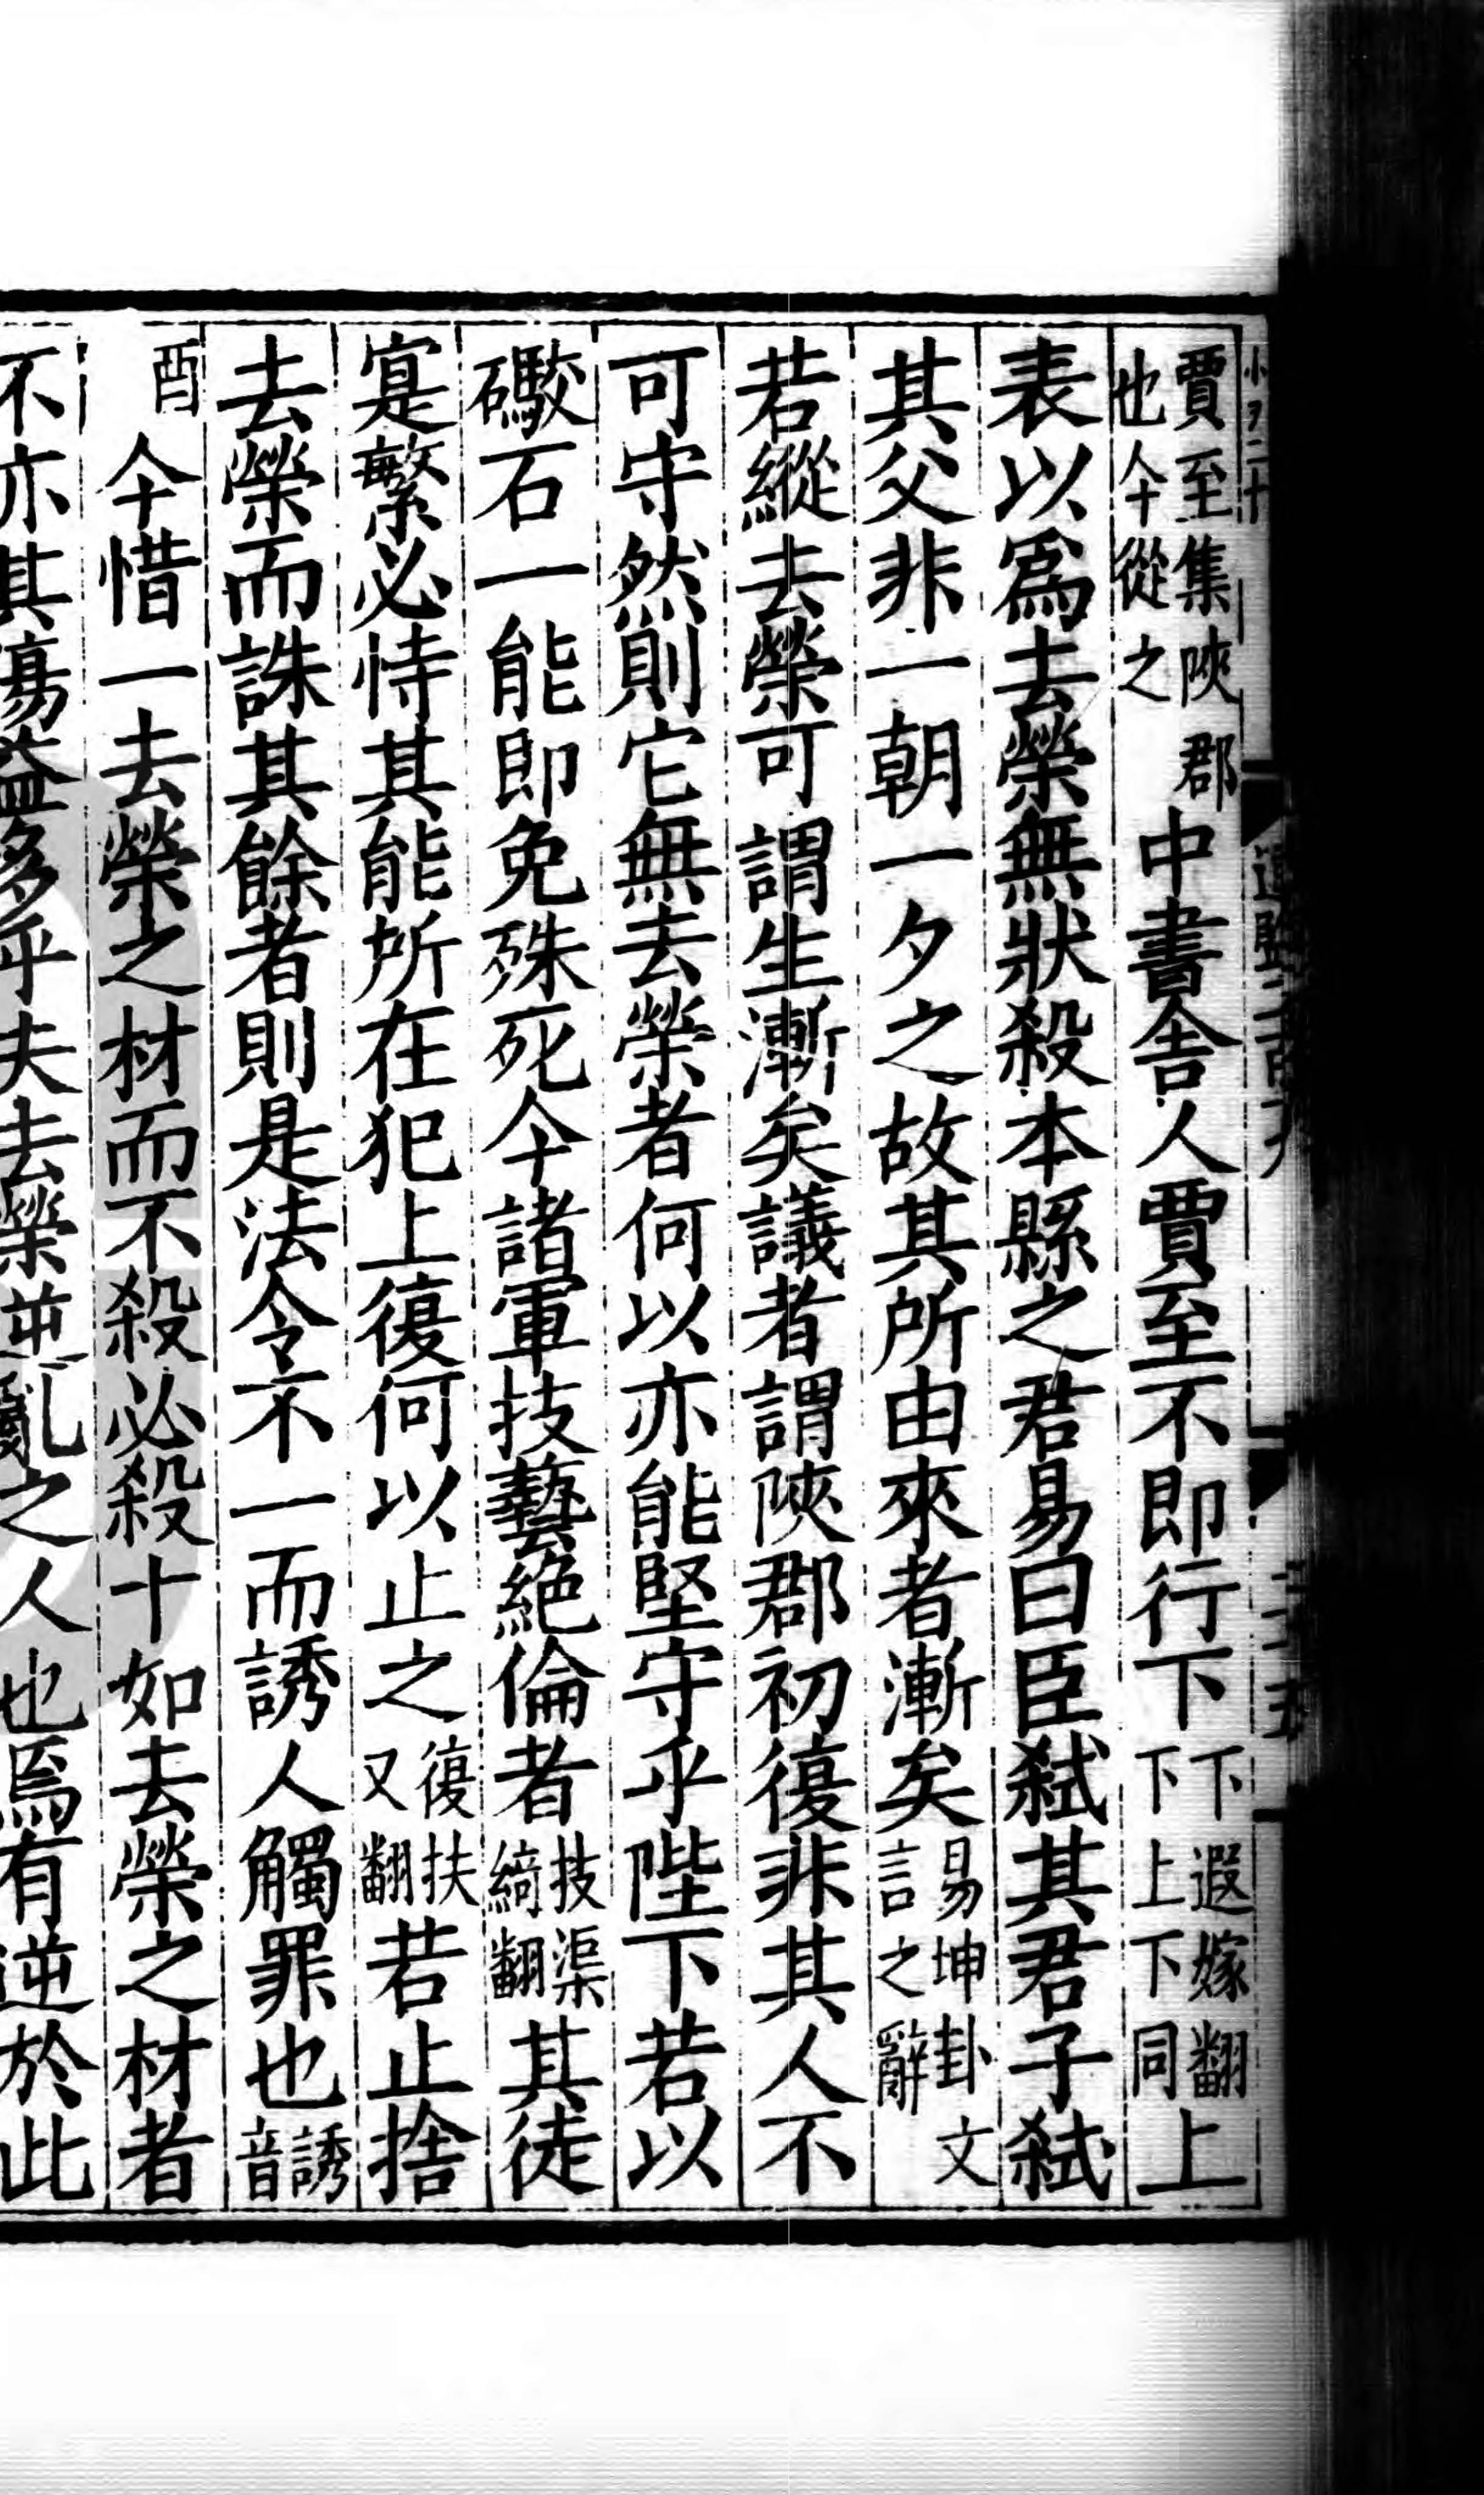 賈至集陝郡也今從之中書舍人賈至不即行下下遐嫁翻下上下同上
表以爲去榮無狀殺本縣之君易曰臣弑其君子弑
其父非一朝一夕之故其所由來者漸矣易坤卦文言之辭
若縱去榮可謂生漸矣議者謂陝郡初復非其人不
可守然則它無去榮者何以亦能堅守乎陛下若以
礮石一能即免殊死今諸軍技藝絶倫者技渠綺翻其徒
寔繁必恃其能所在犯上復何以止之復扶又翻若止捨
去榮而誅其餘者則是法令不一而誘人觸罪也誘音
酉今惜一去榮之材而不殺必殺十如去榮之材者
不亦其傷益多乎夫去榮逆亂之人也焉有逆於此